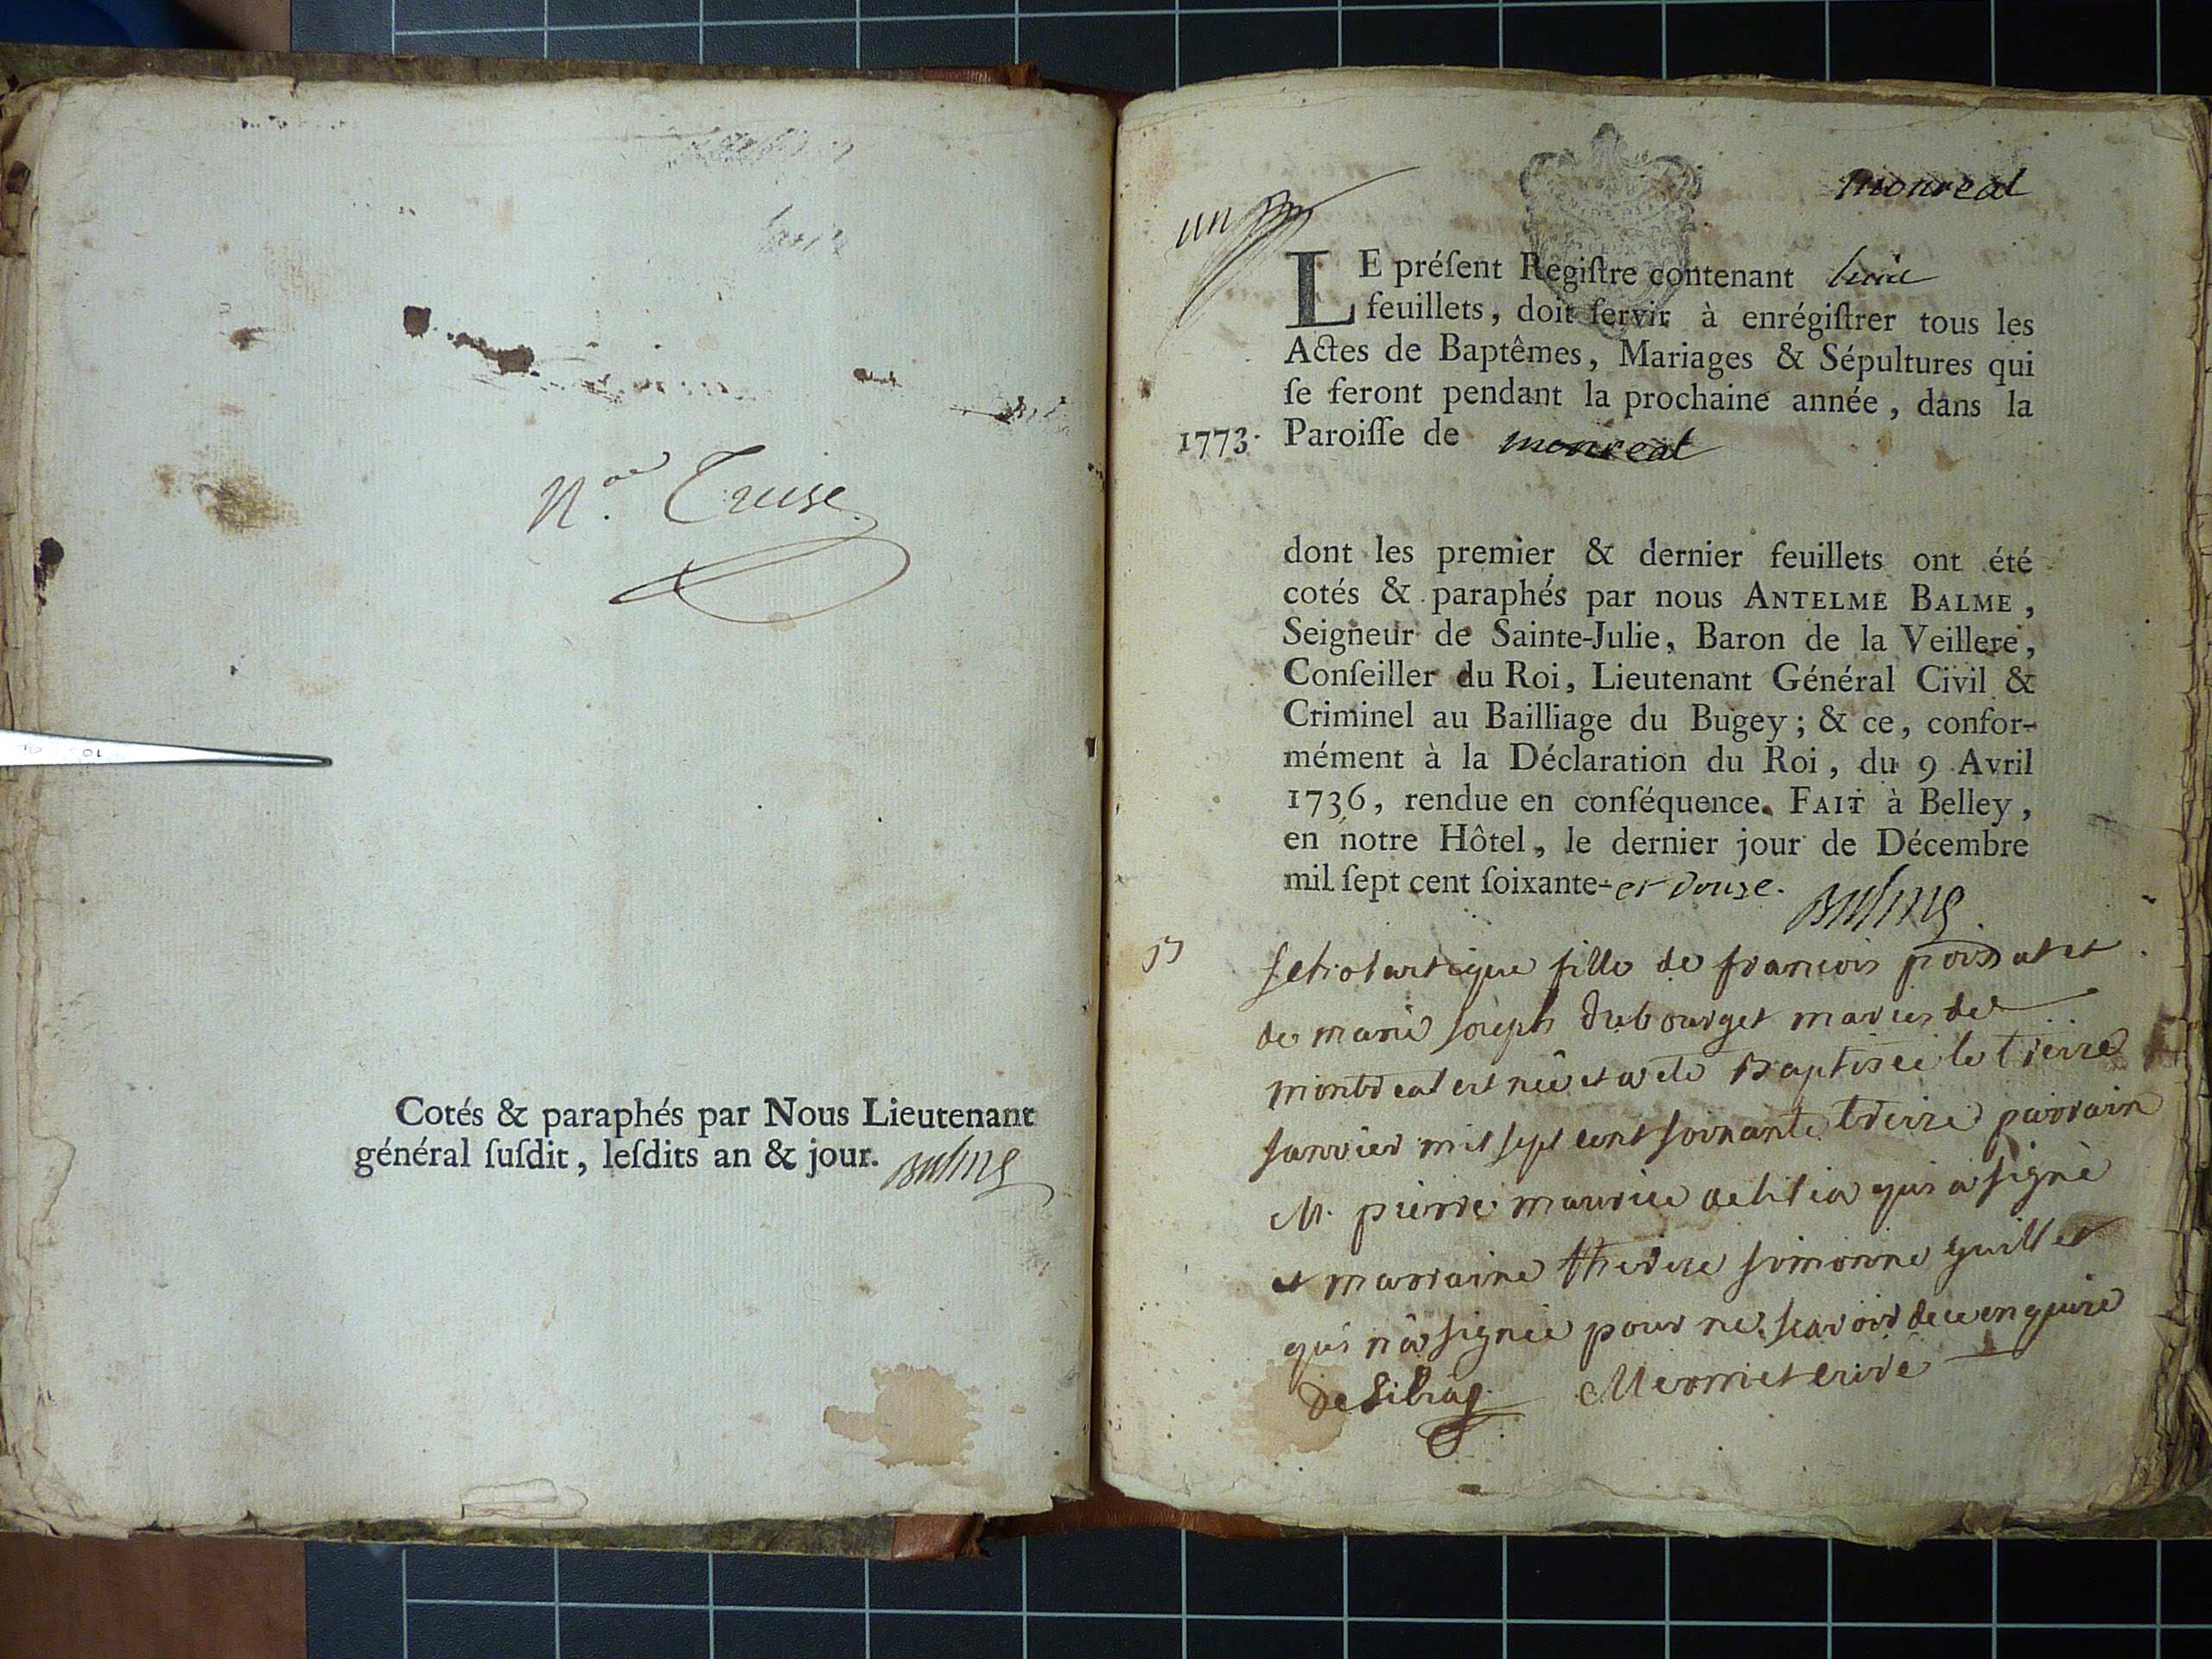 N.º Treise
Cotés & paraphés par Nous Lieutenant
général ſuſdit, leſdits an & jour.
monreal
un
LE préſent Regiſtre contenant
feuillets, doit ſervir à enrégiſtrer tous les
Actes de Baptêmes, Mariages & Sépultures qui
ſe feront pendant la prochaine année, dans la
1773. Paroiſſe de monreal
dont les premier & dernier feuillets ont été
cotés & paraphés par nous ANTELME BALME,
Seigneur de Sainte-Julie, Baron de la Veillere,
Conſeiller du Roi, Lieutenant Général Civil &
Criminel au Bailliage du Bugey; & ce, confor-
mément à la Déclaration du Roi, du 9 Avril
1736, rendue en conſéquence. FAIT à Belley,
en notre Hôtel, le dernier jour de Décembre
mil ſept cent ſoixante-et douze.
fille de francois
de marie joseph dubourget maries de
montreal est née et a eté Baptisée le treize
janvier mil sept cent soixante treize parrain
M. pierre maurice qui a signé
et marraine therese simonne guillet
qui n'a signée pour ne scavoir de ce enquise
Mermet curé